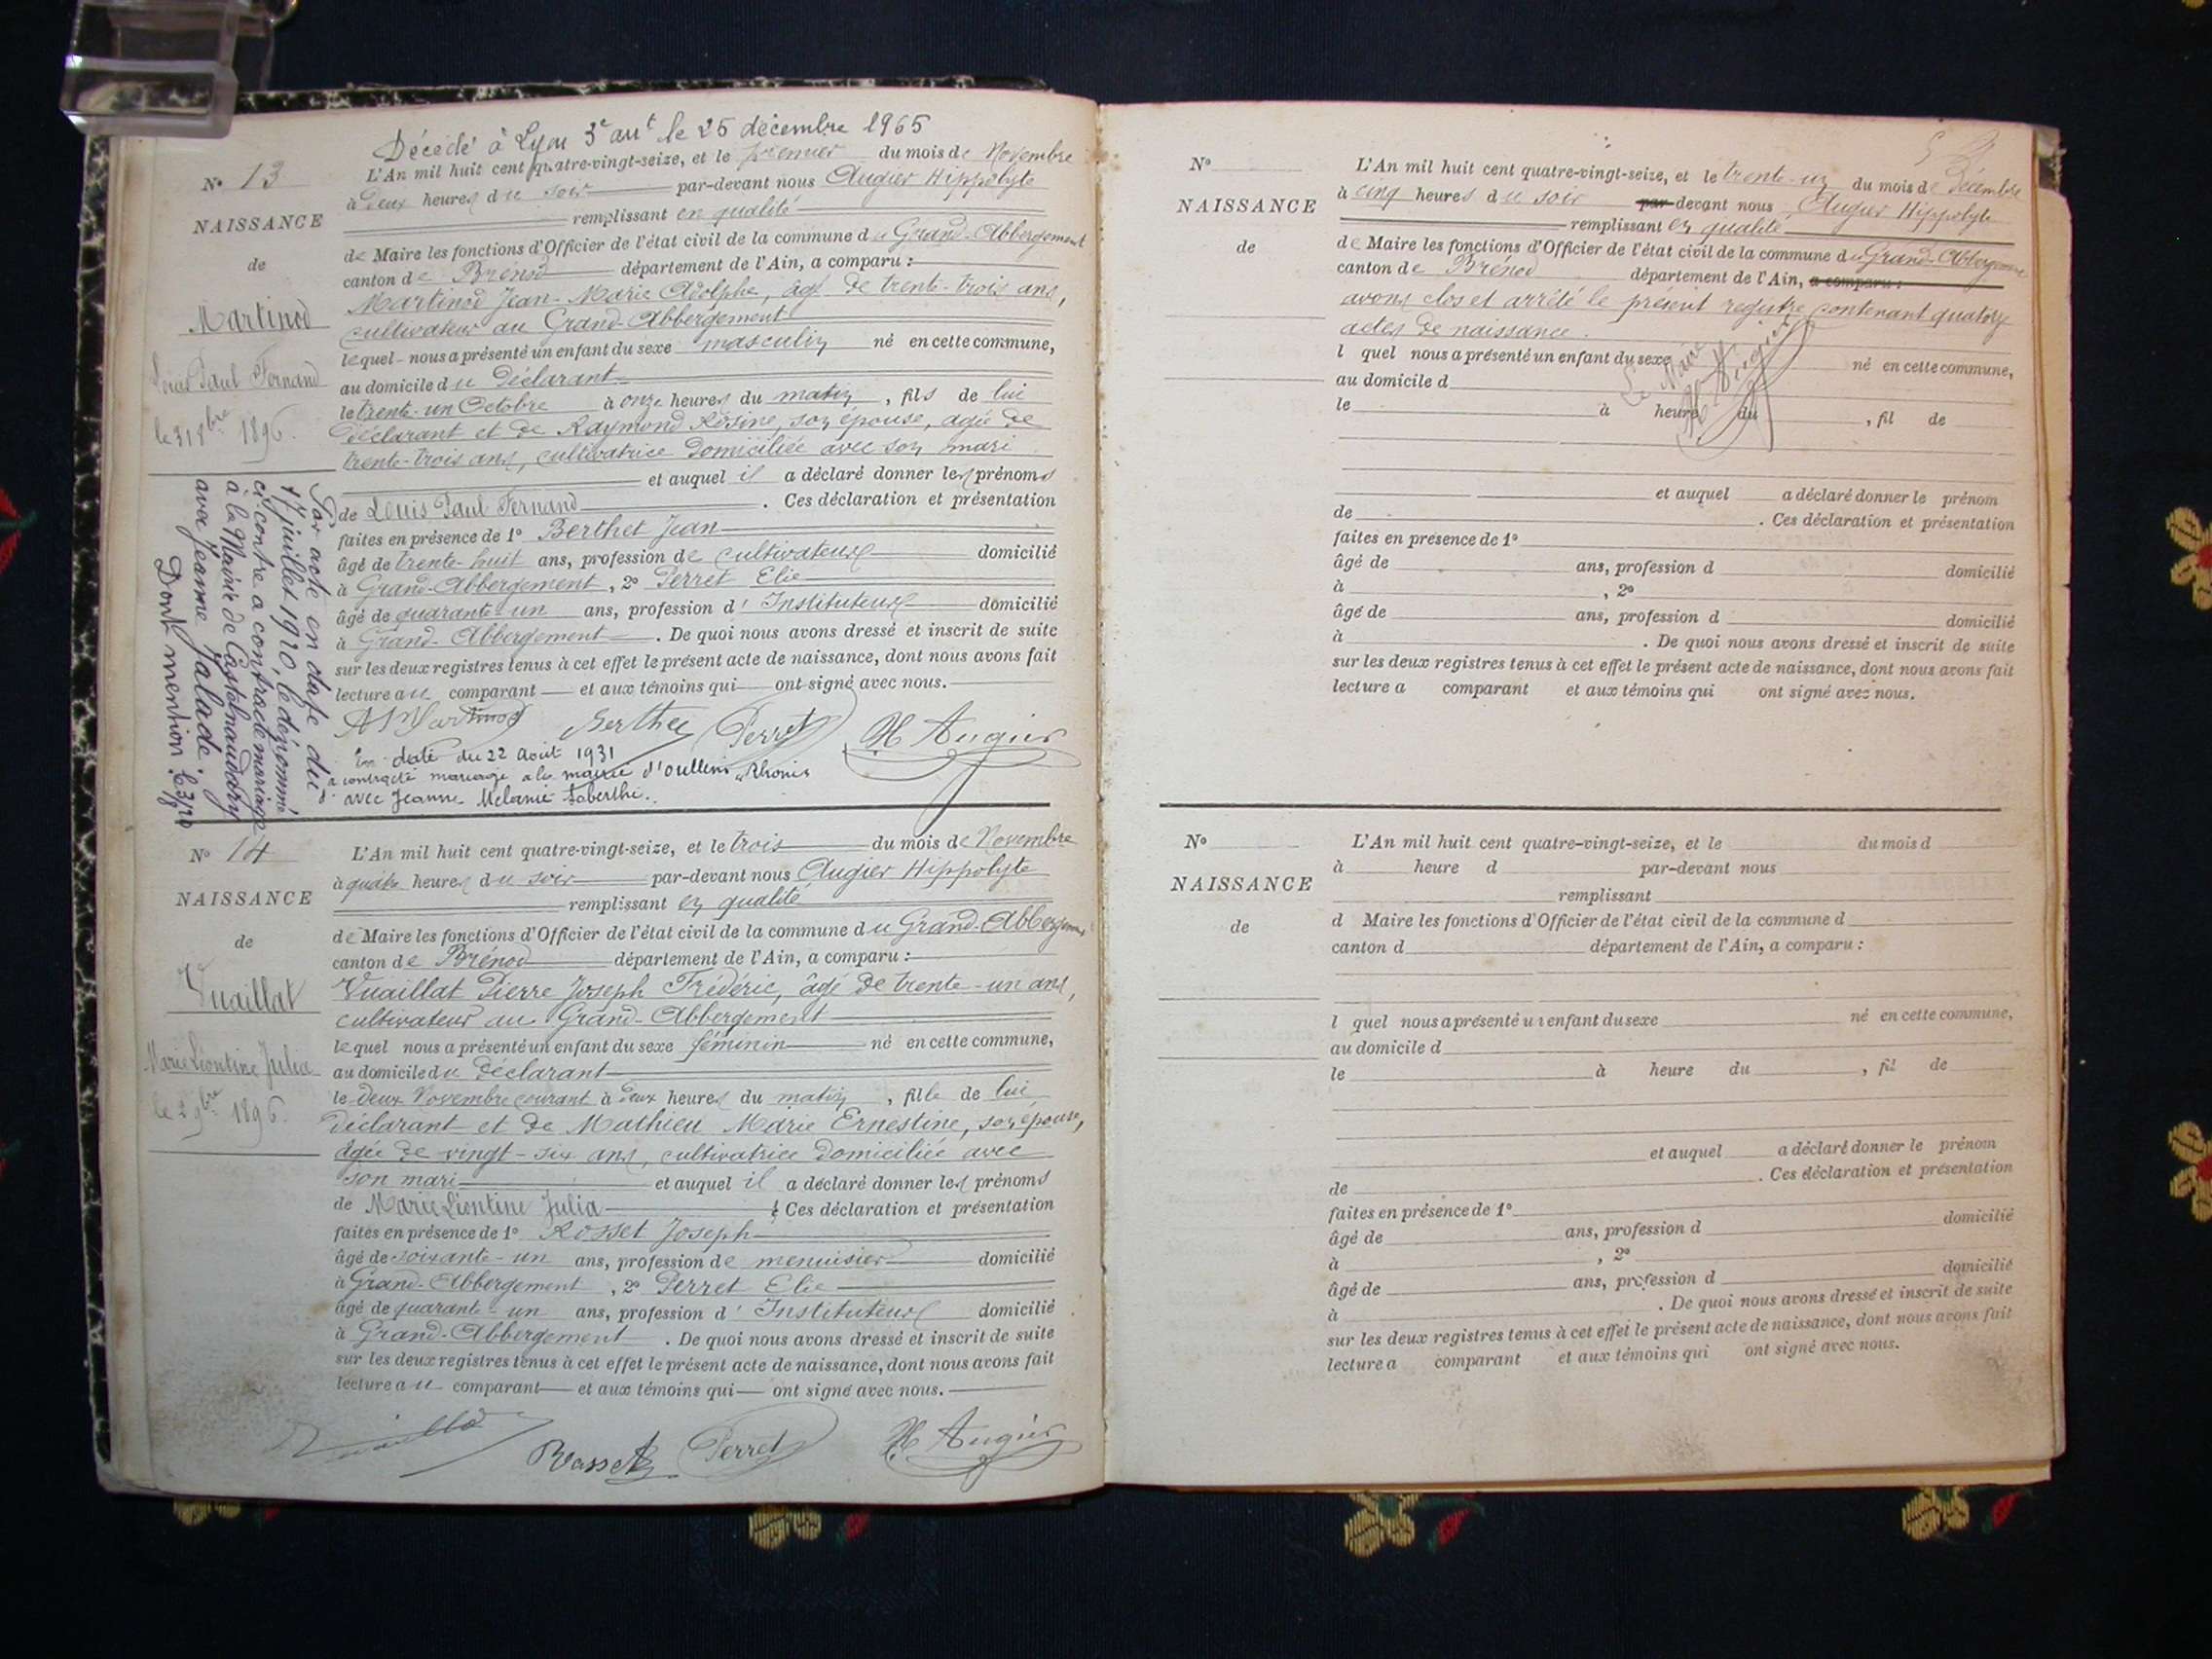 Décédé à Lyon 3e arrt le 25 décembre 1965
N° 13
NAISSANCE
de
Martinod
Louis Paul Fernand
le 31 8bre 1896.
L'An mil huit cent quatre-vingt-seize, et le premier du mois de Novembre
à deux heures du soir par-devant nous Augier Hippolyte
remplissant en qualité
de Maire les fonctions d'Officier de l'état civil de la commune du Grand-Abbergement
canton de Brénod département de l'Ain, a comparu :
Martinod Jean-Marie Adolphe, âgé de trente-trois ans,
cultivateur au Grand-Abbergement
lequel nous a présenté un enfant du sexe masculin né en cette commune,
au domicile du Déclarant
le trente-un Octobre à onze heures du matin, fils de lui
déclarant et de Raymond Rosine, son épouse, agée de
trente-trois ans, cultivatrice domiciliée avec son mari
et auquel il a déclaré donner les prénoms
de Louis Paul Fernand. Ces déclaration et présentation
faites en présence de 1° Berthet Jean
âgé de trente-huit ans, profession de cultivateur domicilié
à Grand-Abbergement, 2° Perret Elie
âgé de quarante-un ans, profession d'Instituteur domicilié
à Grand-Abbergement. De quoi nous avons dressé et inscrit de suite
sur les deux registres tenus à cet effet le présent acte de naissance, dont nous avons fait
lecture au comparant et aux témoins qui ont signé avec nous.
A Martinod Berthet Perret H Augier
Par acte en date du
17 juillet 1920, le dénommé
ci-contre a contracté mariage
à la Mairie de Castelnaudary
avec Jeanne Jalade.
Dont mention.
En date du 22 Août 1931
a contracté mariage à la mairie d'Oullins Rhône
avec Jeanne Mélanie
N° 14
NAISSANCE
de
Vuaillat
Marie Léontine Julia
le 2 9bre 1896.
L'An mil huit cent quatre-vingt-seize, et le trois du mois de Novembre
à quatre heures du soir par-devant nous Augier Hippolyte
remplissant en qualité
de Maire les fonctions d'Officier de l'état civil de la commune du Grand-Abbergement
canton de Brénod département de l'Ain, a comparu :
Vuaillat Pierre Joseph Frédéric, âgé de trente-un ans,
cultivateur au Grand-Abbergement
lequel nous a présenté un enfant du sexe féminin né en cette commune,
au domicile du déclarant
le deux Novembre courant à deux heures du matin, fille de lui
déclarant et de Mathieu Marie Ernestine, son épouse,
âgée de vingt-six ans, cultivatrice domiciliée avec
son mari et auquel il a déclaré donner les prénoms
de Marie Léontine Julia. Ces déclaration et présentation
faites en présence de 1° Rosset Joseph
âgé de soixante-un ans, profession de menuisier domicilié
à Grand-Abbergement, 2° Perret Elie
âgé de quarante-un ans, profession d'Instituteur domicilié
à Grand-Abbergement. De quoi nous avons dressé et inscrit de suite
sur les deux registres tenus à cet effet le présent acte de naissance, dont nous avons fait
lecture au comparant et aux témoins qui ont signé avec nous.
Perret H Augier
N°
NAISSANCE
de
L'An mil huit cent quatre-vingt-seize, et le trente-un du mois de Décembre
à cinq heures du soir par-devant nous Augier Hippolyte
remplissant en qualité
de Maire les fonctions d'Officier de l'état civil de la commune du Grand-Abbergement
canton de Brénod département de l'Ain, a comparu :
avons clos et arrêté le présent registre contenant quatorze
actes de naissance.
Le Maire
H Augier
l quel nous a présenté un enfant du sexe né en cette commune,
au domicile d
le à heure du , fil de
et auquel a déclaré donner le prénom
de . Ces déclaration et présentation
faites en présence de 1°
âgé de ans, profession d domicilié
à , 2°
âgé de ans, profession d domicilié
à . De quoi nous avons dressé et inscrit de suite
sur les deux registres tenus à cet effet le présent acte de naissance, dont nous avons fait
lecture a comparant et aux témoins qui ont signé avec nous.
N°
NAISSANCE
de
L'An mil huit cent quatre-vingt-seize, et le du mois d
à heure d par-devant nous
remplissant
d Maire les fonctions d'Officier de l'état civil de la commune d
canton d département de l'Ain, a comparu :
l quel nous a présenté un enfant du sexe né en cette commune,
au domicile d
le à heure du , fil de
et auquel a déclaré donner le prénom
de . Ces déclaration et présentation
faites en présence de 1°
âgé de ans, profession d domicilié
à , 2°
âgé de ans, profession d domicilié
à . De quoi nous avons dressé et inscrit de suite
sur les deux registres tenus à cet effet le présent acte de naissance, dont nous avons fait
lecture a comparant et aux témoins qui ont signé avec nous.